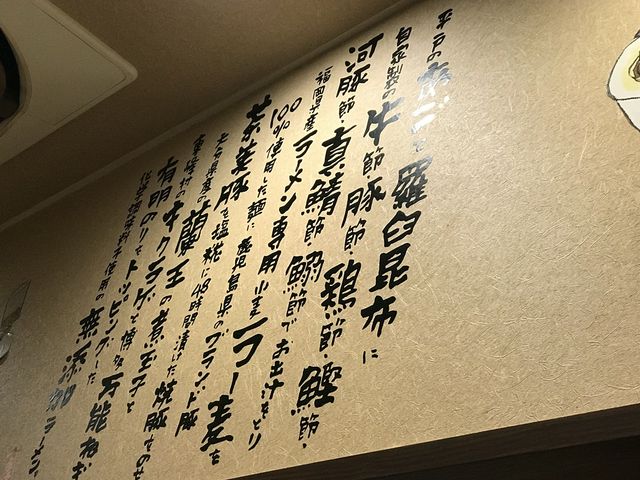 平戸の とこ羅臼昆布に
自家製の牛節・豚節・鶏節・鰹節・
河豚節・真鯖節・鰯節でお出汁をとり
福岡県産ラーメン専用小麦ラー麦を
100%使用した麺に鹿児島県のブランド豚
茶美豚を塩糀に48時間漬けた焼豚をのせ
大分県産の蘭王の煮玉子と
東峰村のキクラゲと博多万能ねぎ
有明のりをトッピングした
化学調味料不使用の無添加ラーメン